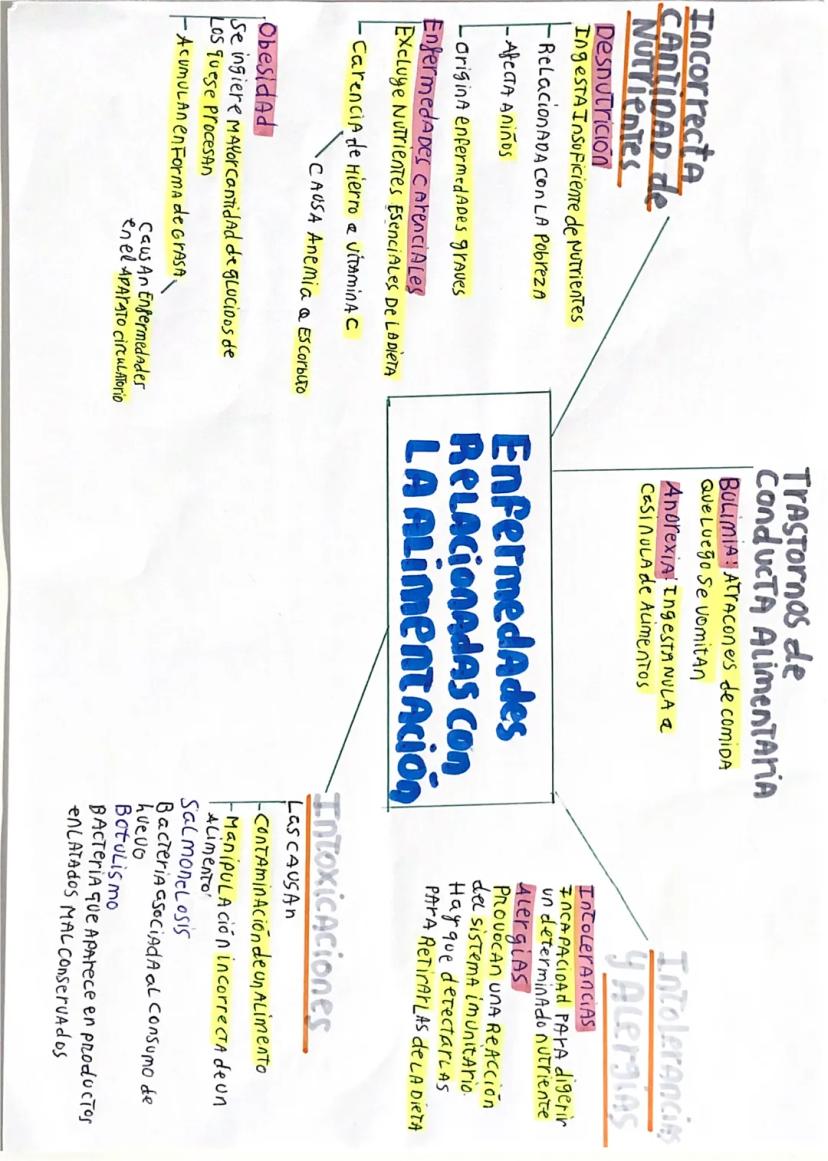 Enfermedades
Relacionadas con
LA ALIMENTACIÓN
INCORRECTA
CANTIDAD de
NUTRIENTES
Desnutrición
Ingesta insuficiente de nutrientes
- Relacionada con la pobreza
- Afecta a niños
- Origina enfermedades graves
Enfermedades carenciales
Excluye nutrientes esenciales de la dieta
- Carencia de hierro o vitamina C
CAUSA Anemia o Escorbuto
Obesidad
Se ingiere mayor cantidad de glúcidos de
los que se procesan
- Acumulan en forma de grasa
Causan enfermedades
en el aparato circulatorio
TRASTORNOS de
CONDUCTA ALIMENTARIA
Bulimia: Atracones de comida
que luego se vomitan
Anorexia: Ingesta nula o
casi nula de alimentos
Intolerancias
y Alergias
Intolerancias
Incapacidad para digerir
un determinado nutriente
Alergias
Provocan una reacción
del sistema imunitario.
Hay que detectarlas
para retirarlas de la dieta
Intoxicaciones
Las causan
- Contaminación de un alimento
- Manipulación incorrecta de un
alimento
Salmonelosis
Bacteria asociada al consumo de
huevo
Botulismo
Bacteria que aparece en productos
enlatados mal conservados